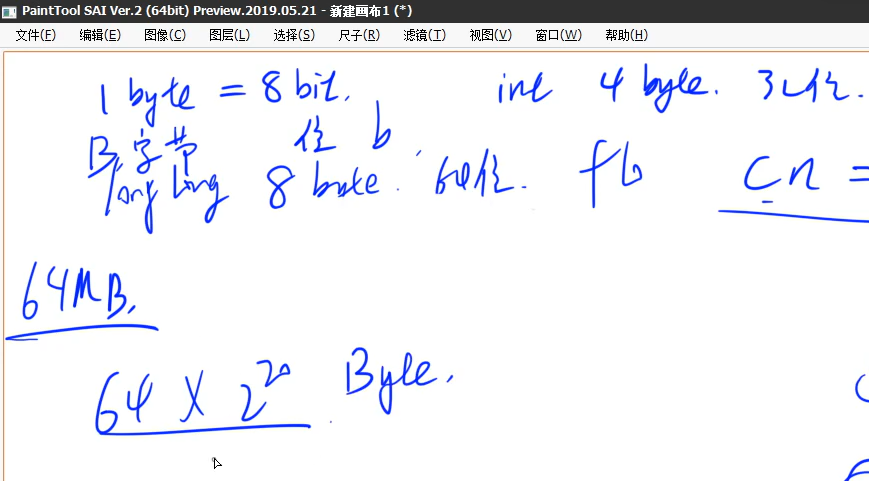 PaintTool SAI Ver.2 (64bit) Preview.2019.05.21 - 新建画布1 (*)
文件(F) 编辑(E) 图像(C) 图层(L) 选择(S) 尺子(R) 滤镜(T) 视图(V) 窗口(W) 帮助(H)
1 byte = 8 bit. int 4 byte. 32位.
B 字节 位 b
long long 8 byte. 64位. fb Cn =
64MB.
64 × 2^20 Byte.